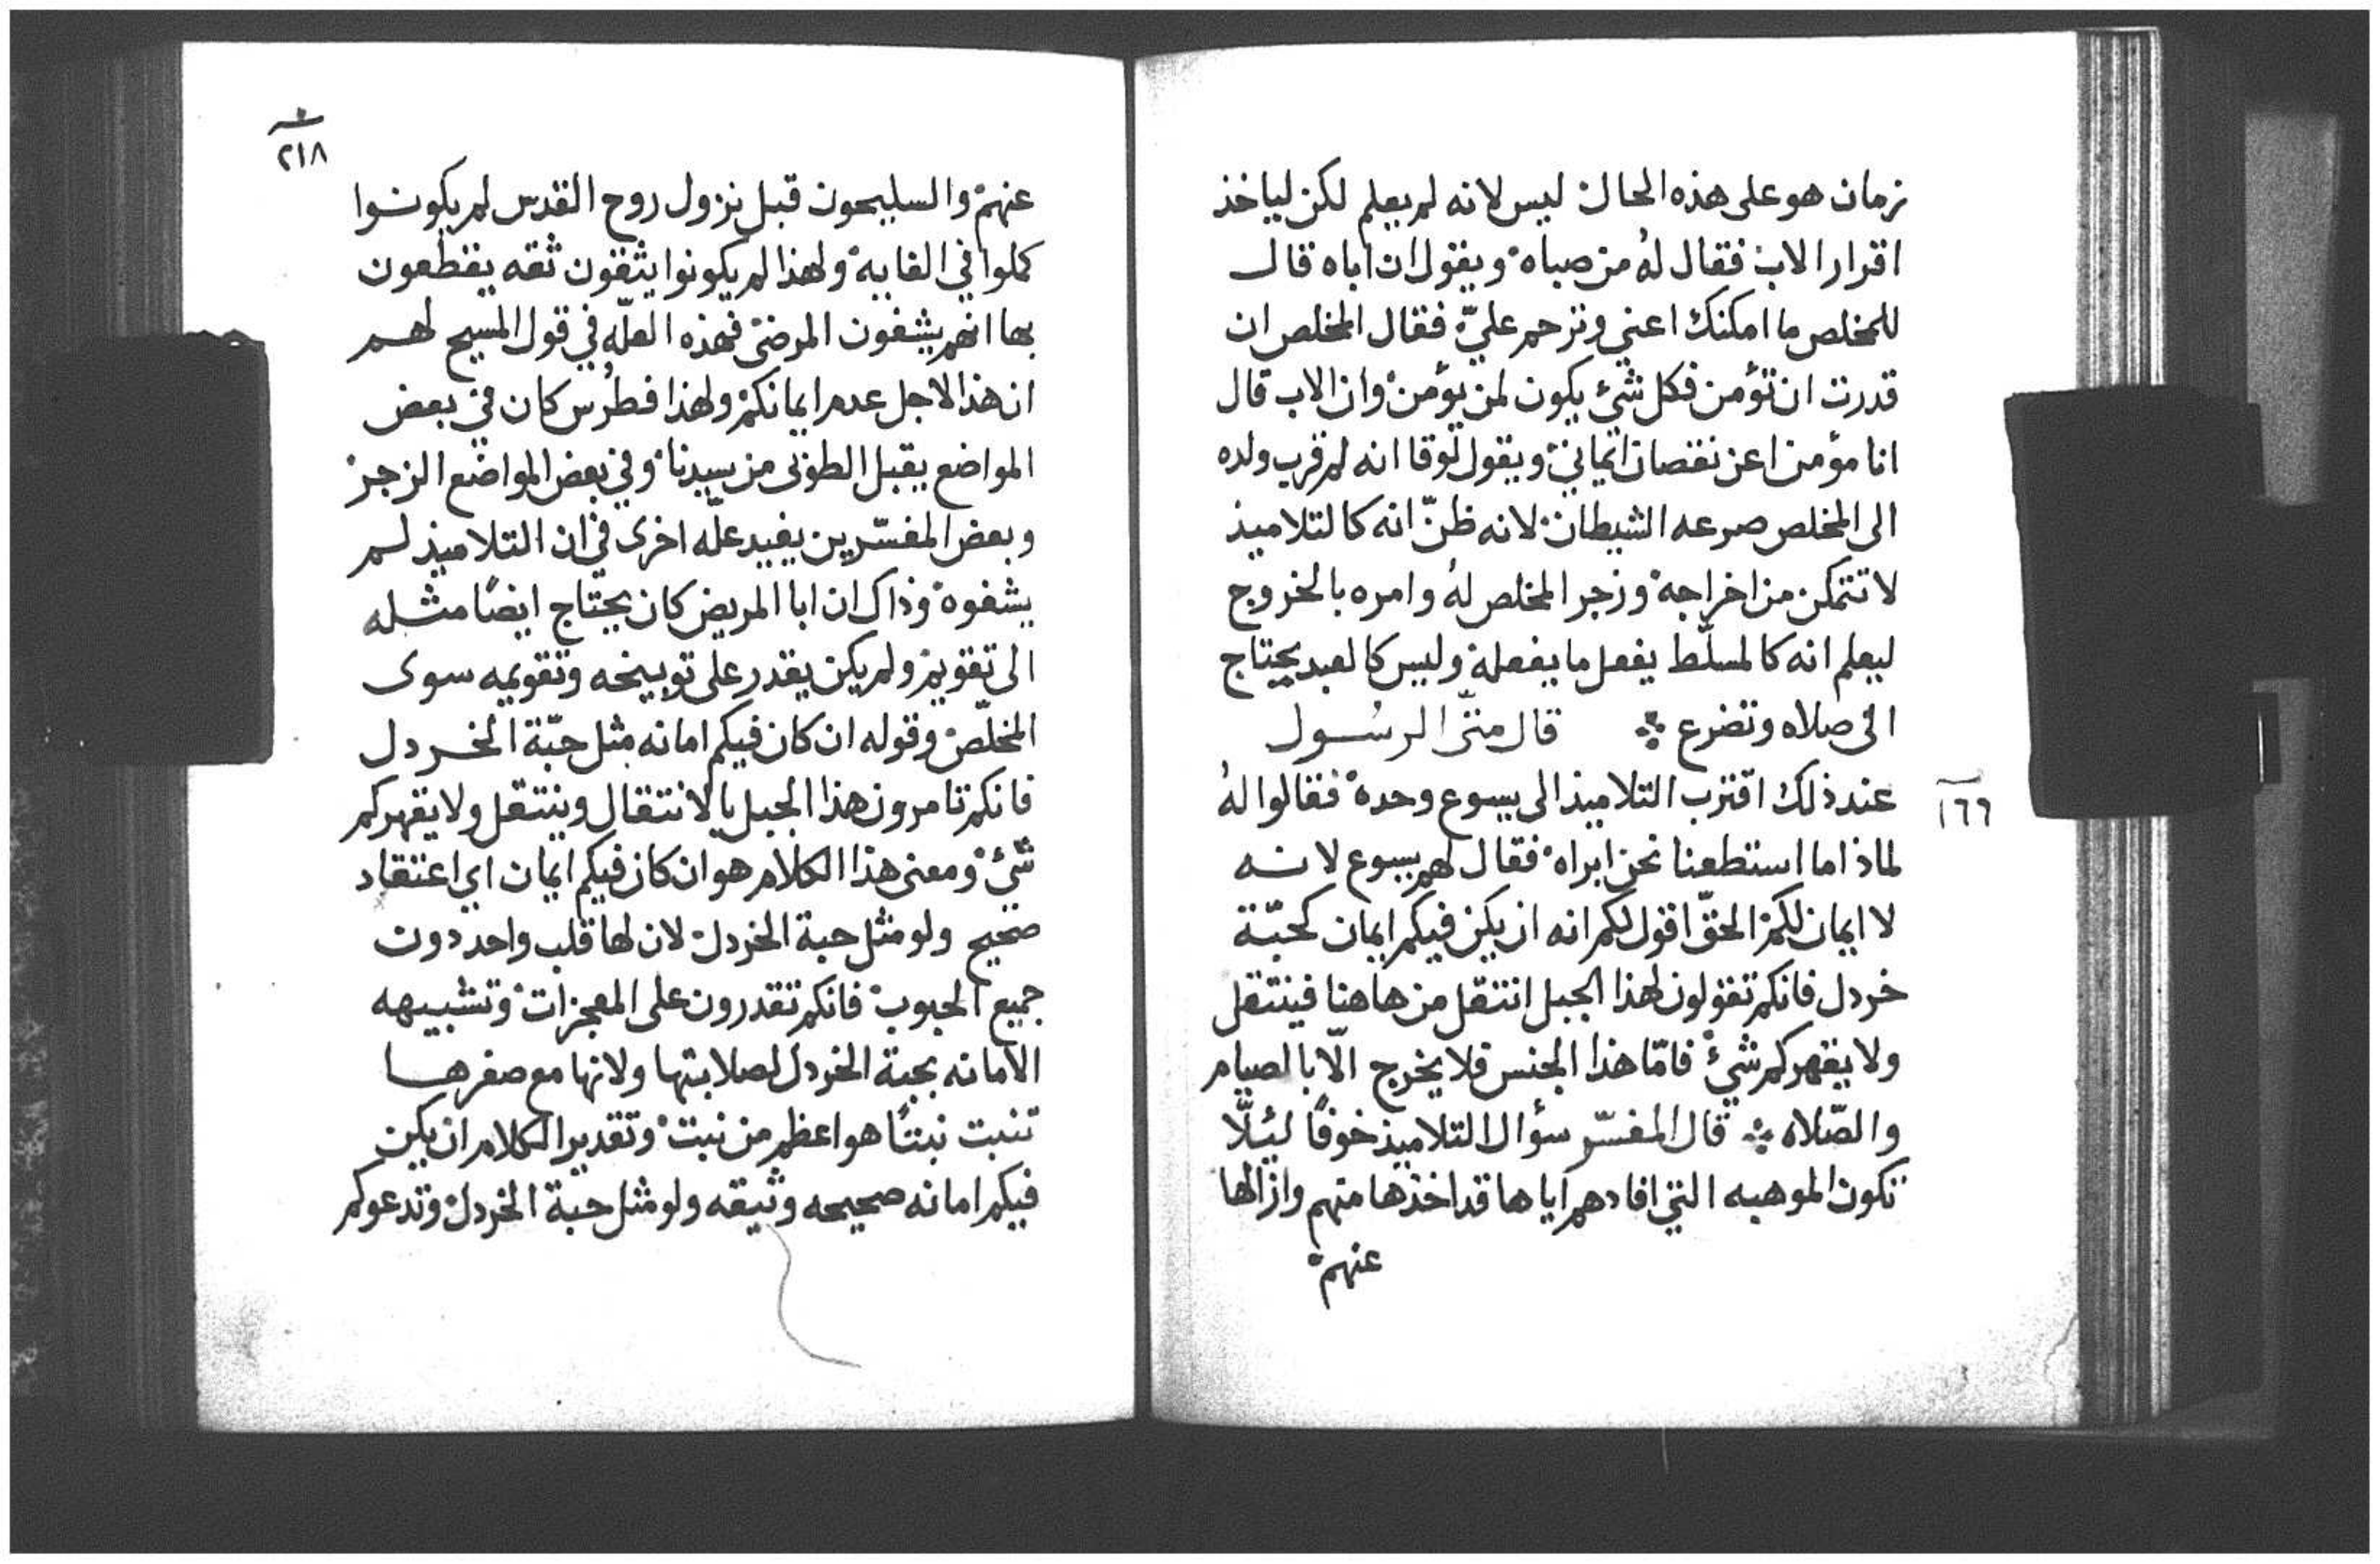 زمان هو على هذه الحال ليس لانه لم يعلم لكن لياخذ
اقرار الاب فقال لهُ من صباه ويقول ان اباه قال
للمخلص ما امكنك اعني وترحم عليّ فقال المخلص ان
قدرت ان تؤمن فكل شئ يكون لمن يؤمن وان الاب قال
انا مؤمن اعن نقصان ايماني ويقول لوقا انه لم قرب ولده
الى المخلص صرعه الشيطان لانه ظنّ انه كالتلاميذ
لا تتمكن من اخراجه وزجر المخلص لهُ وامره بالخروج
ليعلم انه كالمسلّط يفعل ما يفعله وليس كالعبد يحتاج
الى صلاه وتضرع ܀ قال متى الرسول
١٦٦
عند ذلك اقترب التلاميذ الى يسوع وحده فقالوا لهُ
لماذا ما استطعنا نحن ابراه فقال لهم يسوع لانه
لا ايمان لكم الحقّ اقول لكم انه ان يكن فيكم ايمان كحبّة
خردل فانكم تقولون لهذا الجبل انتقل من هاهنا فينتقل
ولا يقهركم شئ فامّا هذا الجنس فلا يخرج الّا بالصيام
والصّلاه ܀ قال المفسّر سؤال التلاميذ خوفًا ليئلّا
تكون الموهبه التي افادهم اياها قد اخذها منهم وازالها
عنهم
٢١٨
عنهم والسليحون قبل نزول روح القدس لم يكونوا
كملوا في الغايه ولهذا لم يكونوا يثقون ثقه يقطعون
بها انهم يشفون المرضى فهذه العلّه في قول المسيح لهم
ان هذا لاجل عدم ايمانكم ولهذا فطرُس كان في بعض
المواضع يقبل الطوبى من سيدنا وفي بعض المواضع الزجر
وبعض المفسّرين يفيد علّه اخرى في ان التلاميذ لم
يشفوه وذاك ان ابا المريض كان يحتاج ايضًا مثله
الى تقويم ولم يكن يقدر على توبيخه وتقويمه سوى
المخلّص وقوله ان كان فيكم امانه مثل حبّة الخردل
فانكم تامرون هذا الجبل بالانتقال وينتقل ولا يقهركم
شئ ومعنى هذا الكلام هو ان كان فيكم ايمان اي اعتقاد
صحيح ولو مثل حبة الخردل لان لها قلب واحد دون
جميع الحبوب فانكم تقدرون على المعجزات وتشبيهه
الامانه بحبة الخردل لصلابتها ولانها مع صغرها
تنبت نبتًا هو اعظم من نبت وتقدير الكلام ان يكن
فيكم امانه صحيحه وثيقه ولو مثل حبة الخردل وتدعوكم